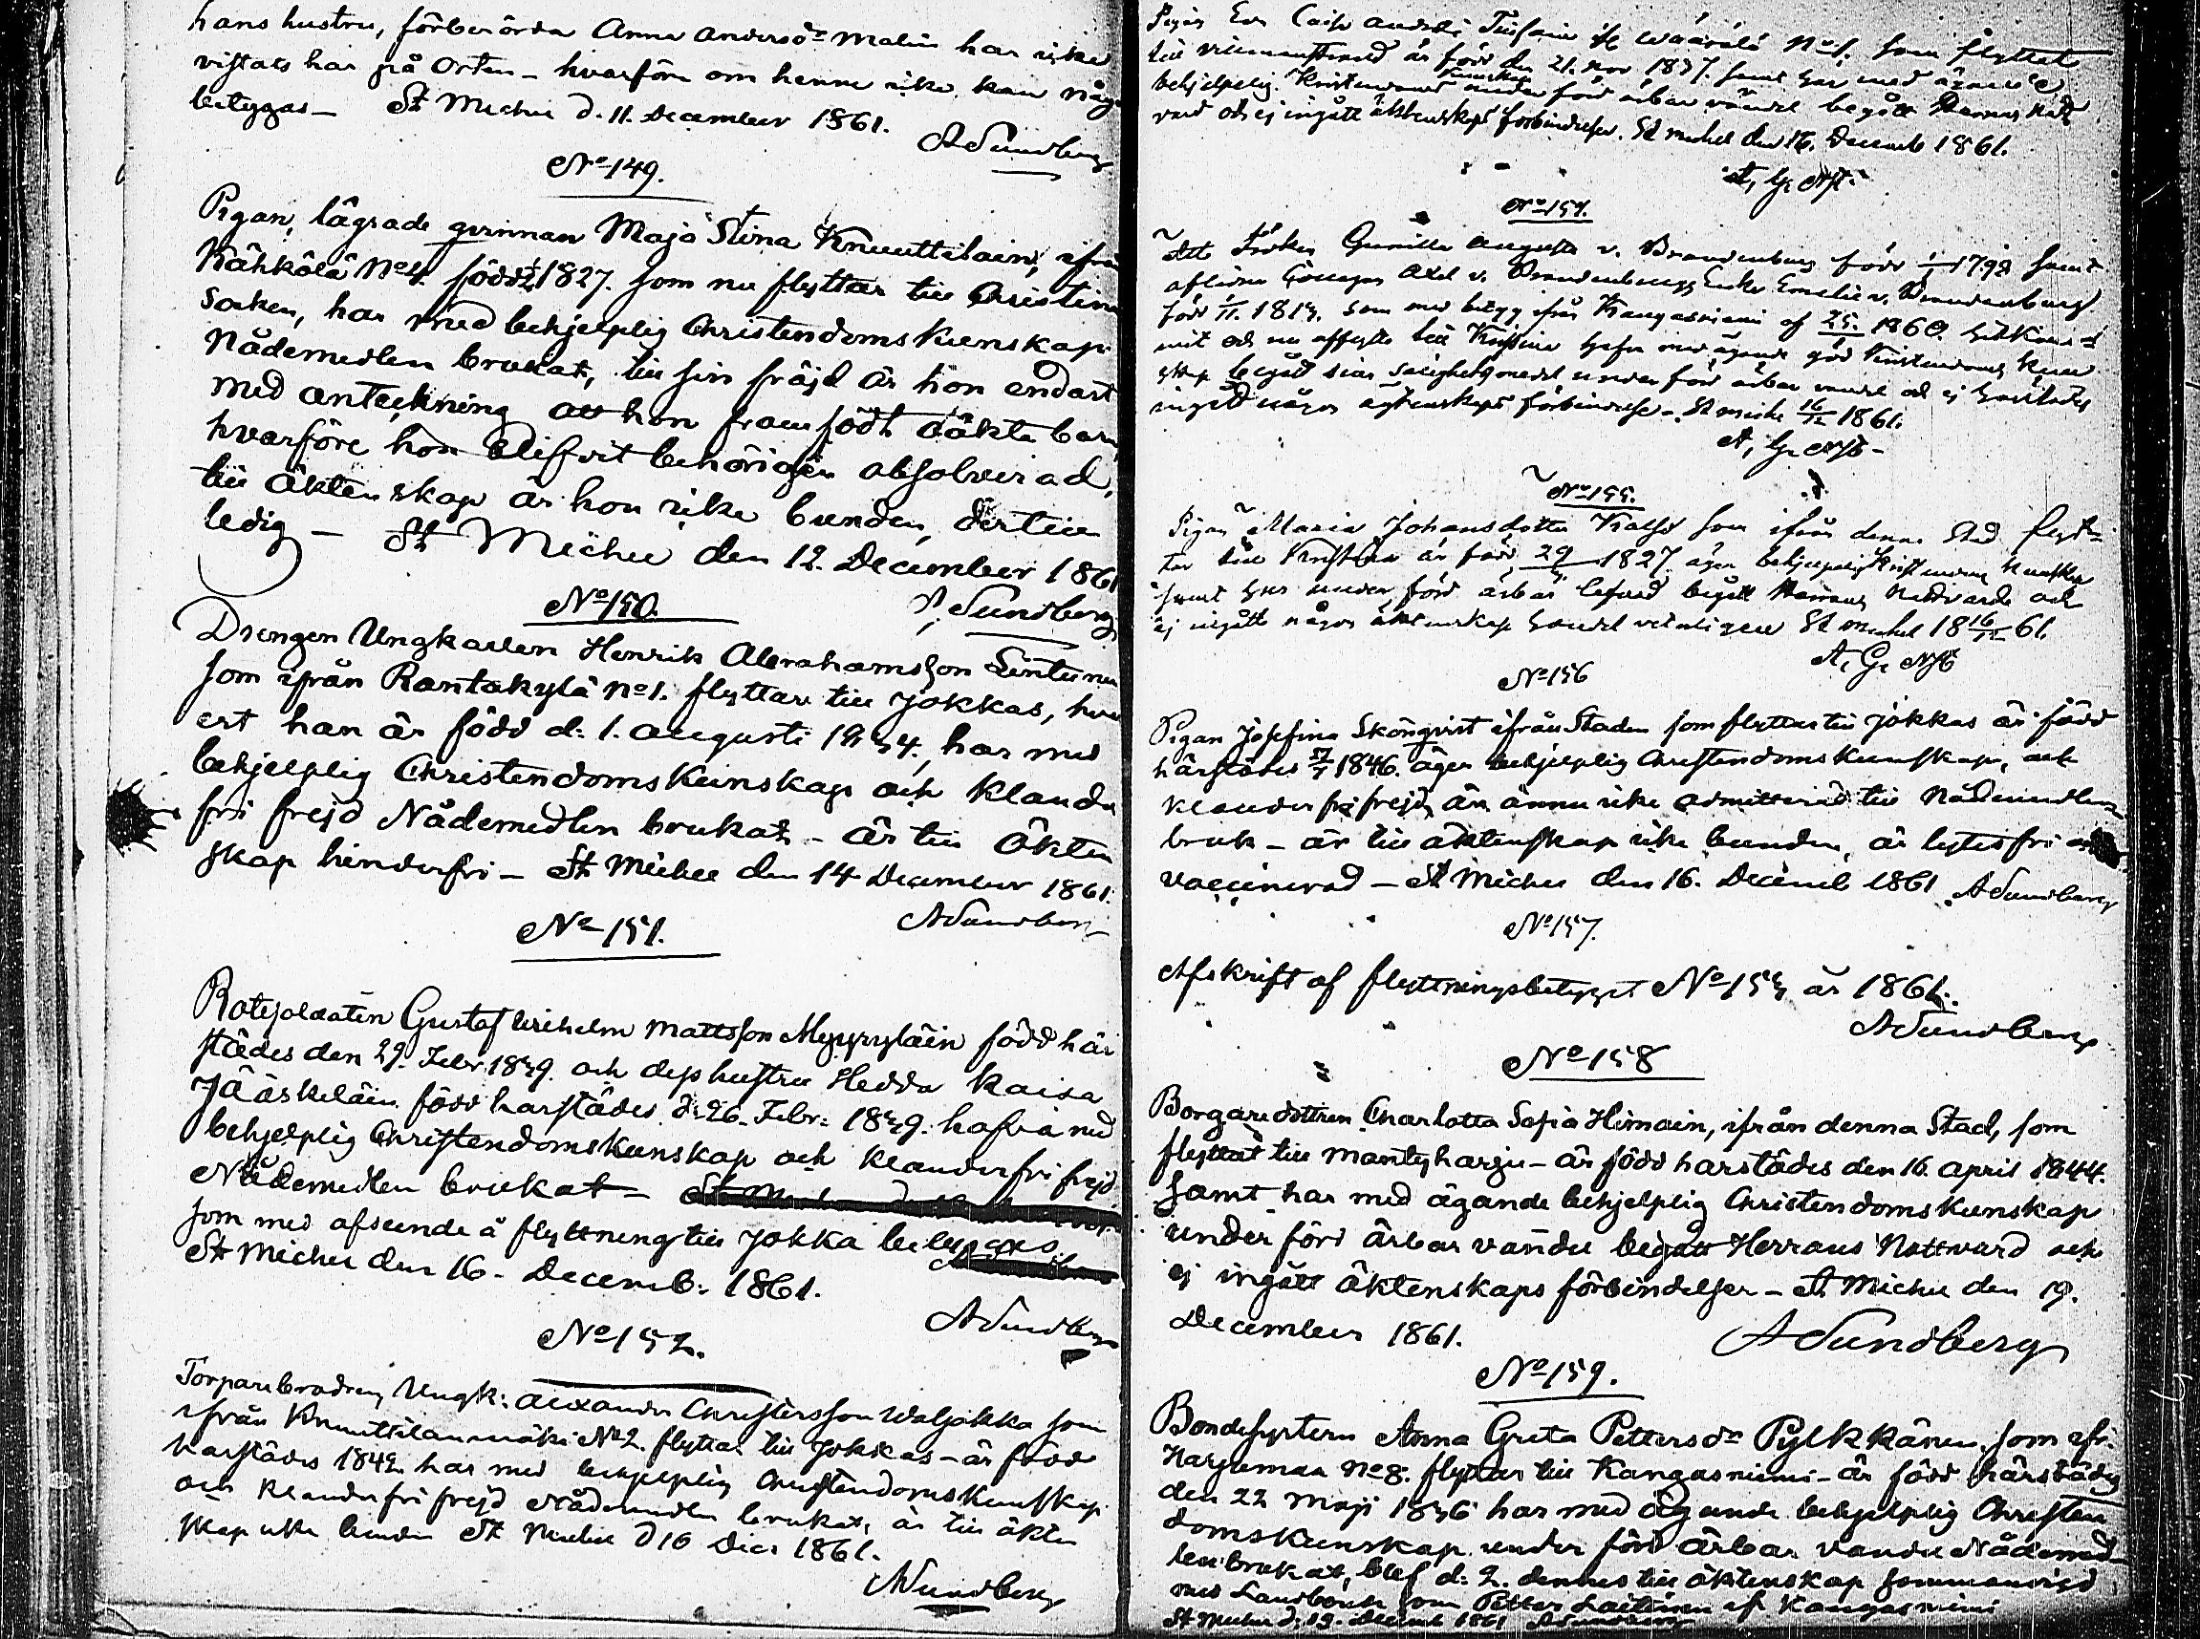 hans hustru, förberörda Anna Andersd:r Malin har icke
vistats här på Orten – hvarföre om henne icke kan någ
betygas – St Michel d. 11. December 1861.
ASundberg
No 149.
Pigan, lägrade qvinnan Maja Stina Knuuttilain, ifrån
Kähkölä No 4. född 1827. som nu flyttar till Christina
Socken, har med behjelplig Christendomskunskap
Nådemedlen brukat, till sin fräjd är hon endast
med anteckning att hon framfödt oäkta barn,
hvarföre hon blifvit behörigen absolverad,
till äktenskap är hon icke bunden, dertill
ledig – St Michel den 12. December 1861
ASundberg
No 150.
Drengen Ungkarlen Henrik Abrahamsson Lintunen
som ifrån Rantakylä No 1. flyttar till Jokkas, hv
est han är född d: 1. Augusti 1834, har med
behjelplig Christendomskunskap och klander
fri frejd Nådemedlen brukat – är till Äkten
skap hinderfri – St Michel den 14 December 1861.
ASundberg
No 151.
Rotesoldaten Gustaf Wilhelm Mattsson Myyryläin född här
städes den 29. Febr 1839. och dess hustru Hedda Kaisa
Jääskeläin född harstädes d: 26. Febr: 1839. hafva med
behjelplig Christendomskunskap och klanderfri frejd
Nådemedlen brukat –
som med afseende å flyttning till Jokka betygas
St Michel den 16. Decemb: 1861.
ASundberg
No 152.
Torparebrodren Ungk: Alexander Christersson Waljakka som
ifrån Knuuttilanmäki No 2. flyttar till Jokkas – är född
harstädes 1842 har med behjelplig Christendomskunskap
och klanderfri frejd Nådemedlen brukat, är till äkten
skap icke bunden St Michel d 16 Decr 1861.
ASundberg
Pigan Eva Caisa Andersd: från Wäärälä No 1. som flyttat
till är född den 21. Nov 1837. samt har med ägande
behjelplig Kristendoms kunskap under förd ärbar vandel begått Herrans Natt
vard och ej ingått äktenskaps förbindelser. St Michel den 16. Decemb 1861.
No 154.
Att Fröken Gunilla Augusta v. Brandenburg född 1798 samt
aflidne Axel v. Brandenburgs Enka Emelie v. Brandenburg
född 1813. som med betyg från Kangasniemi af 1860. hitkom
mit och nu afflytta till Kristina hafva med ägande god Kristendoms kun
skap begått sina salighetsmedel under förd ärbar vandel och ej
ingått någon äktenskaps förbindelse. St Michel 16/12 1861.
No 155.
Pigan Maria Johansdotter som ifrån denna Stad flyt-
tar till Kristina är född 29 1827. äger behjelplig Kristendoms kunskap
samt har under förd ärbar lefnad begått Herrans Nattvard och
ej ingått någon äktenskap St Michel 18 16/12 61.
No 156
Pigan Josefina Skönqvist ifrån Staden som flyttar till Jokkas är född
härstädes 1846. äger behjelplig Christendomskunskap, och
klanderfri frejd, är ännu icke admitterad till Nådemedlens
bruk – är till äktenskap icke bunden, är lytesfri och
vaccinerad – St Michel den 16. Decemb 1861 ASundberg
No 157.
Afskrift af flyttningsbetyget No 153 år 1861.
ASundberg
No 158
Borgaredottren Charlotta Sofia Himain, ifrån denna Stad, som
flyttat till Mäntyharju – är född harstädes den 16. April 1844.
samt har med ägande behjelplig Christendomskunskap
under förd ärbar vandel begått Herrans Nattvard och
ej ingått äktenskaps förbindelser – St Michel den 19.
December 1861. ASundberg
No 159.
Bondesystern Anna Greta Pettersdr Pylkkänen, som ifr.
Harjumaa No 8. flyttar till Kangasniemi – är född härstädes
den 22 Maji 1836 har med ägande behjelplig Christen
domskunskap under förd ärbar vandel Nådemed-
len brukat, blef d: 2. dennes till äktenskap sammanvigd
med Landbonde sonen Petter Laitinen af Kangasniemi
St Michel d: 19. Decemb 1861 ASundberg